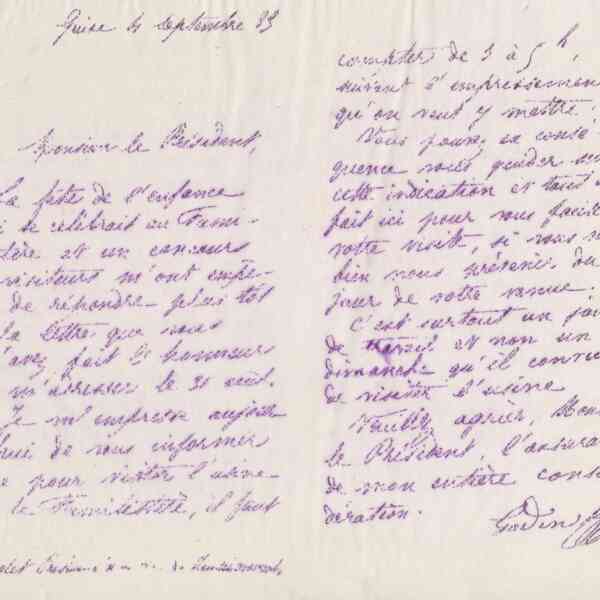 Guise 4 septembre 83
Monsieur le Président,
La fête de l'enfance
i se célébrait au Fami-
tère et un concours
visiteurs m'ont empê-
de répondre plus tôt
la lettre que vous
avez fait l'honneur
m'adresser le 31 août.
Je m'empresse aujour-
hui de vous informer
e pour visiter l'usine
le Familistère, il faut
compter de 3 à 5 h,
suivant l'empressemen
qu'on veut y mettre.
Vous pouvez en consé-
quence vous guider su
cette indication et tout s
fait ici pour vous facili
votre visite, si vous v
bien nous prévenir du
jour de votre venue.
C'est surtout un jou
de travail et non un
dimanche qu'il convie
de visiter l'usine
Veuillez agréer, Mons
le Président, l'assuran
de mon entière consi
dération.
Godin